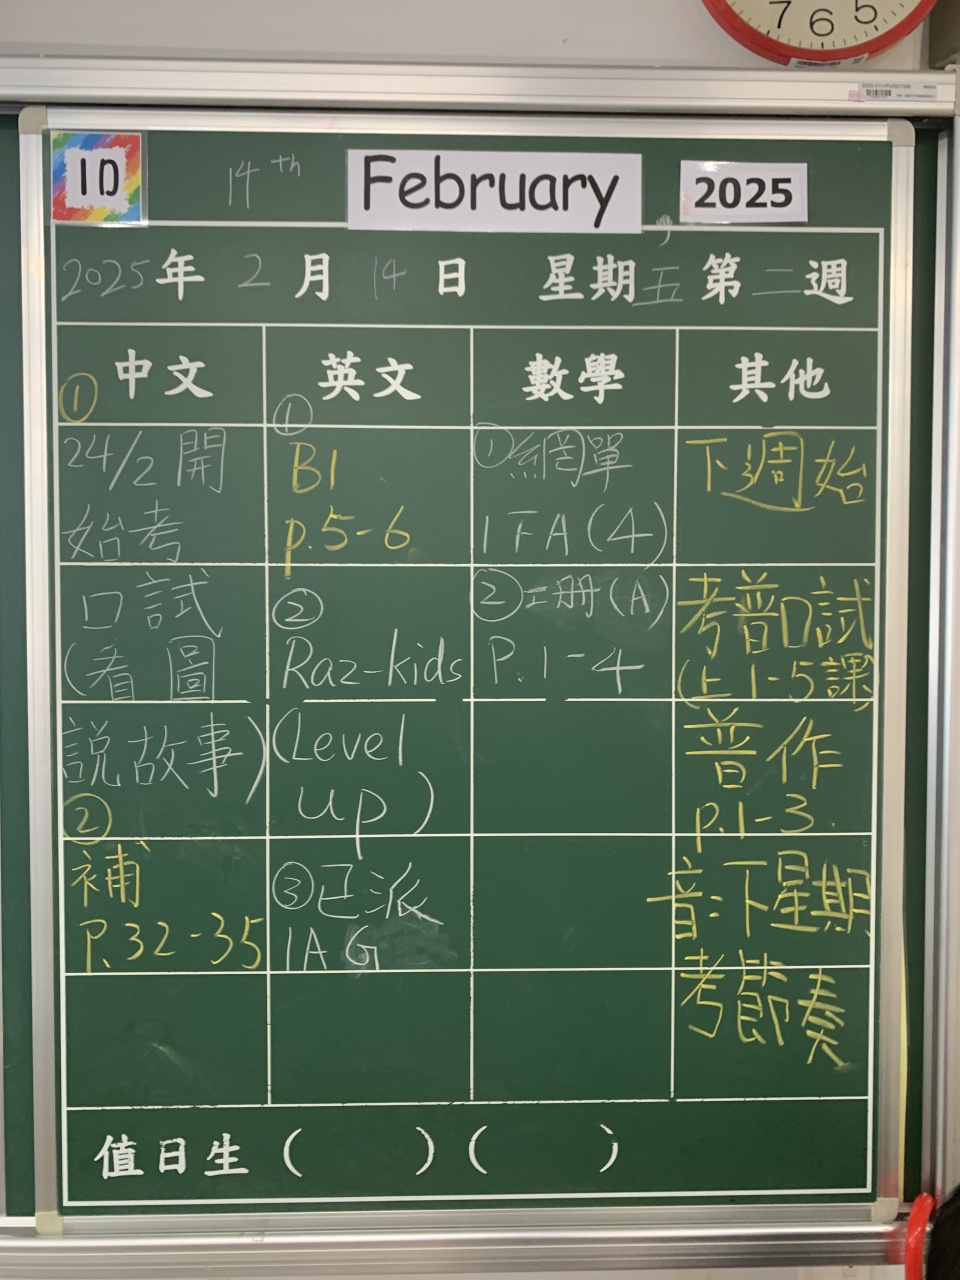 7 6 5
1D 14th February 2025
2025年 2月 14日 星期五 第二週
中文 英文 數學 其他
①
24/2 開
始考
口試
(看圖
說故事)
②
補
P.32-35
①
B1
p.5-6
②
Raz-kids
(Level
up)
③已派
1AG
①網單
1FA(4)
②工冊(A)
P.1-4
下週始
考普口試
(上1-5課)
普作
p.1-3
音:下星期
考節奏
值日生 ( ) ( )